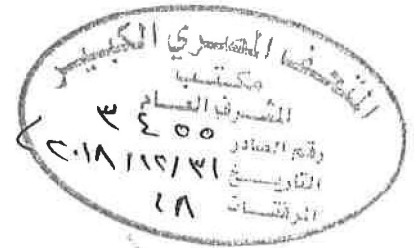 المتحف المصري الكبير
مكتب
المشرف العام
رقم الصادر ٣٤٥٥
التاريخ ٢٠١٨/١٢/٣١
المرفقات ٤٨